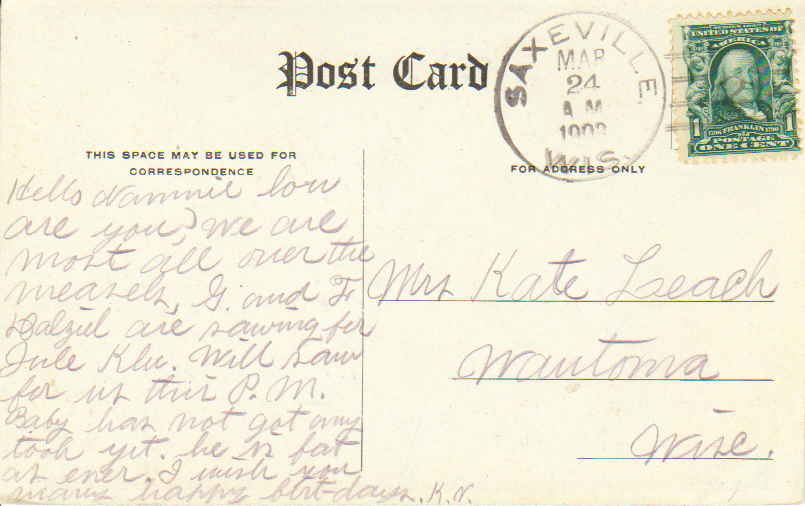 Post Card
SAXEVILLE
MAR
24
A M
WIS.
UNITED STATES OF
AMERICA
1 FRANKLIN 1
POSTAGE
ONE CENT
THIS SPACE MAY BE USED FOR
CORRESPONDENCE
FOR ADDRESS ONLY
Hello Nammie how
are you? We are
most all over the
measels, G. and Fr
Dalziel are sawing for
Jule Klu. Will saw
for us this P.M.
Baby has not got any
tooh yet. he is fat
as ever. I wish you
many happy birt-days. K.N.
Mrs Kate Leach
Wautoma
Wisc.